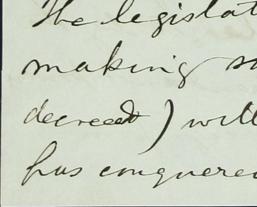 The legislat
making s
decreed ) will
has conquered